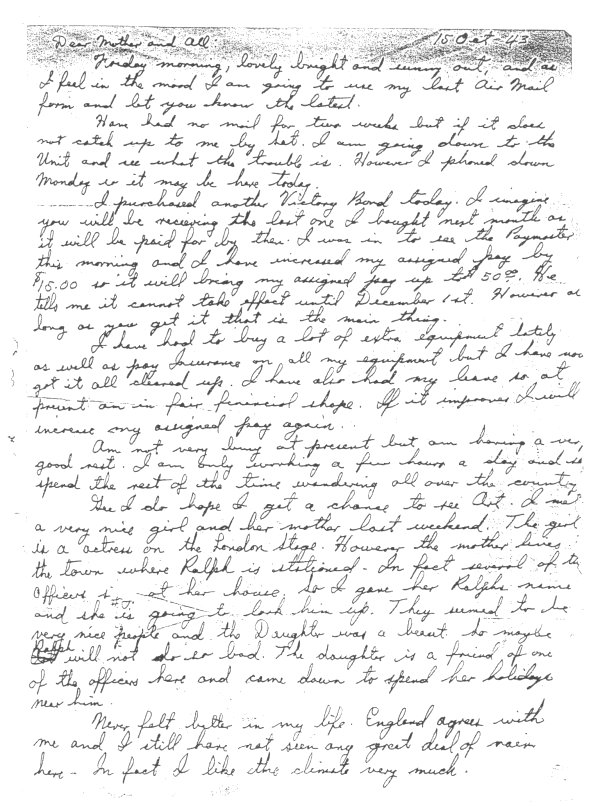 Dear Mother and All: 15-Oct-43
Friday morning, lovely bright and sunny out, and as
I feel in the mood I am going to use my last Air Mail
form and let you know the latest.
Have had no mail for two weeks but if it does
not catch up to me by Sat. I am going down to the
Unit and see what the trouble is. However I phoned down
Monday so it may be here today.
I purchased another Victory Bond today. I imagine
you will be receiving the last one I bought next month as
it will be paid for by then. I was in to see the Paymaster
this morning and I have increased my assigned pay by
$15.00 so it will bring my assigned pay up to $50.00. He
tells me it cannot take effect until December 1st. However as
long as you get it that is the main thing.
I have had to buy a lot of extra equipment lately
as well as pay Insurance on all my equipment but I have now
got it all cleared up. I have also had my leave so at
present am in fair financial shape. If it improves I will
increase my assigned pay again.
Am not very busy at present but am having a very
good rest. I am only working a few hours a day and
spend the rest of the time wandering all over the country
Gee I do hope I get a chance to see Art. I met
a very nice girl and her mother last weekend. The girl
is a actress on the London Stage. However the mother lives
the town where Ralph is stationed - In fact several of the
Officers at her house, so I gave her Ralphs name
and she is going to look him up. They seemed to be
very nice people and the Daughter was a beaut. So maybe
Ralph will not do so bad. The daughter is a friend of one
of the officers here and came down to spend her holidays
near him.
Never felt better in my life. England agrees with
me and I still have not seen any great deal of rain
here - In fact I like the climate very much.